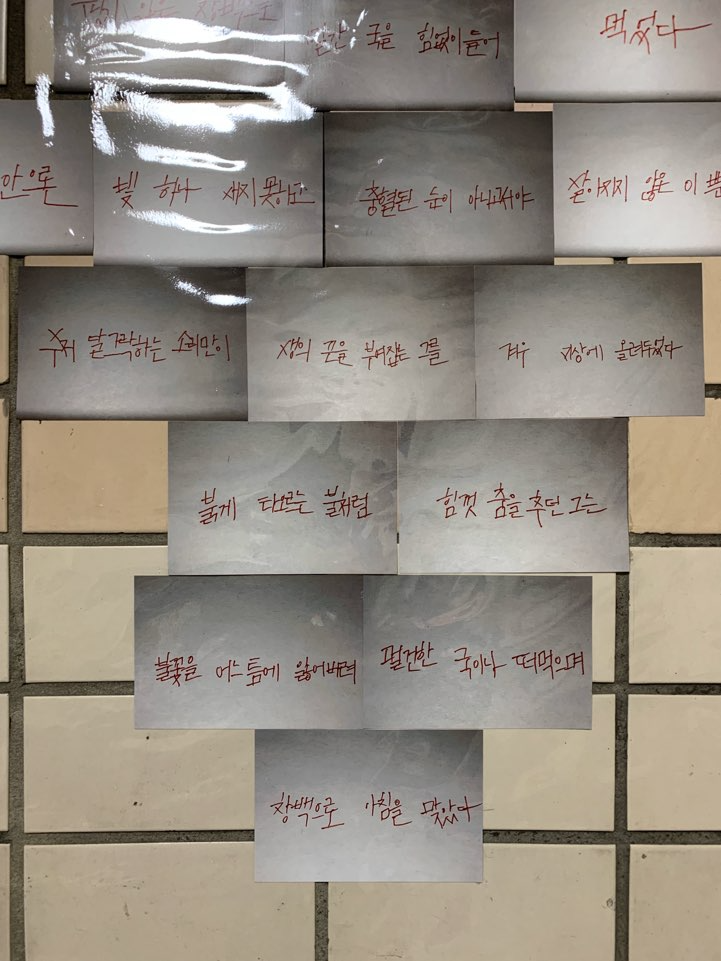 국을 힘없이 들어 먹었다
안으론 빛 하나 새지 못하고 충혈된 눈이 아니고서야 잘 이
수저 달그락하는 소리만이 생의 끈을 부여잡는 그를 겨우 올려두었다
붉게 타오르는 불처럼 힘껏 춤을 추던 그는
불꽃을 어느 틈에 잃어버려 멀건한 국이나 떠먹으며
창백으로 아침을 맞았다